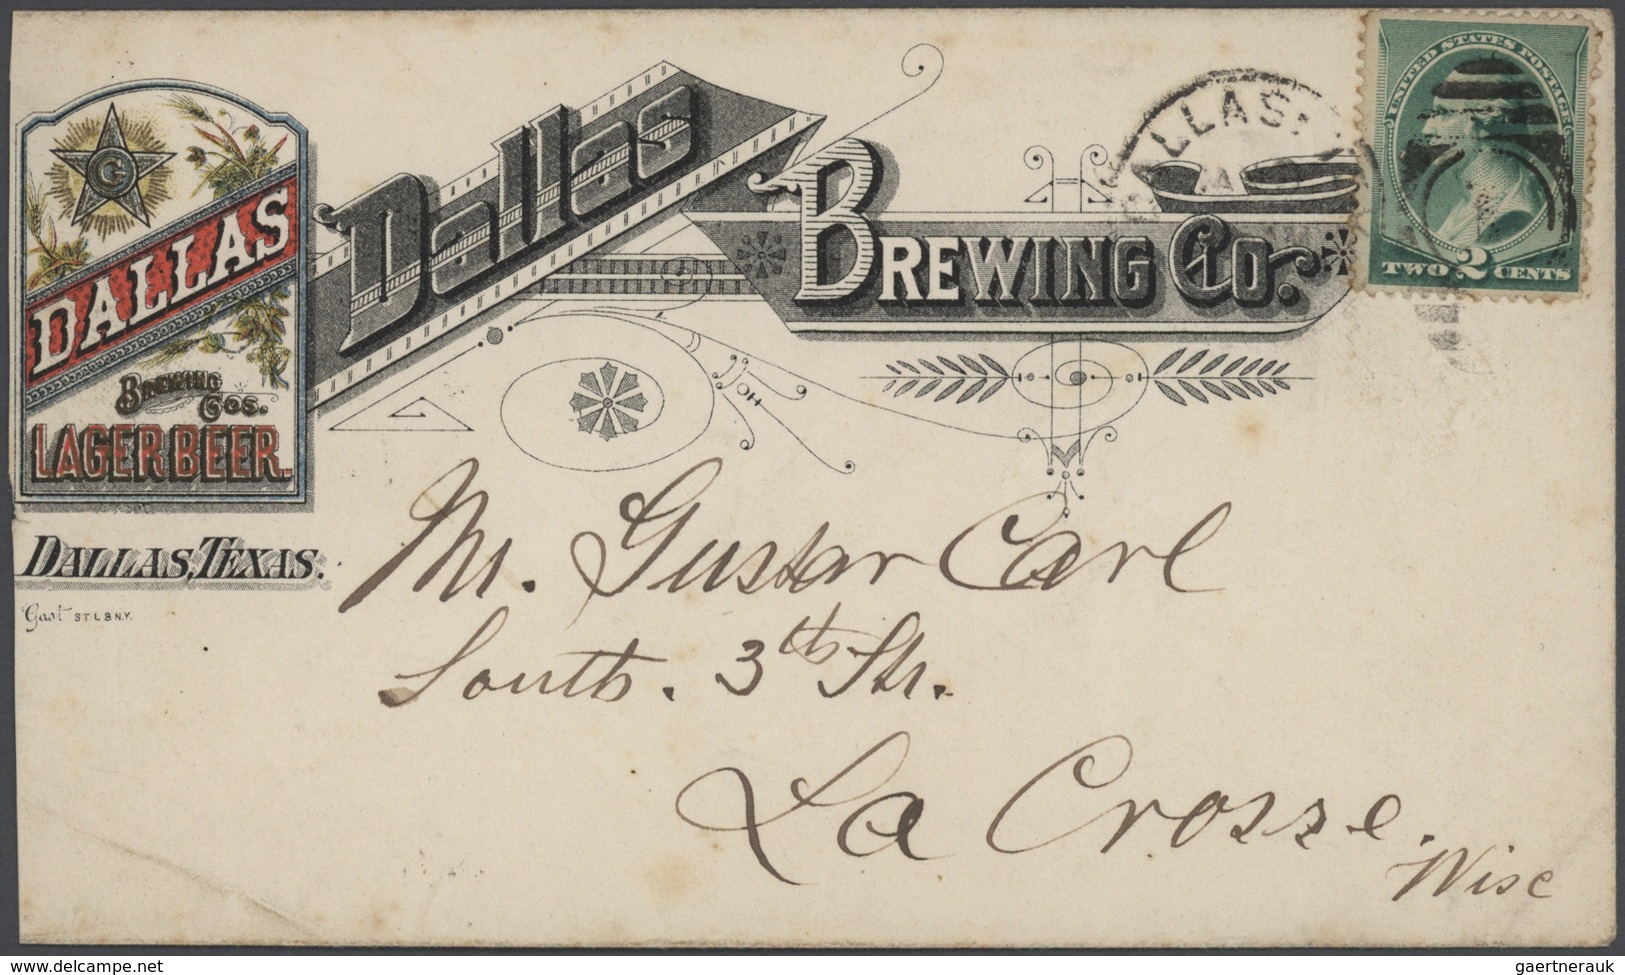 Dallas
BREWING CO.
DALLAS
UNITED STATES POSTAGE
TWO 2 CENTS
G
DALLAS
BREWING
COS.
LAGER BEER.
DALLAS, TEXAS.
Gast ST.L & N.Y.
Mr. Gustav Carl
South. 3th Str.
La Crosse.
Wisc
delcampe.net
gaertnerauk